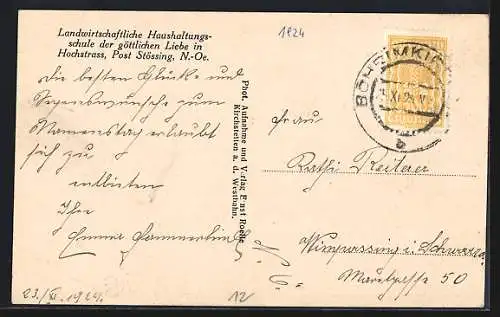 Landwirtschaftliche Haushaltungs-
schule der göttlichen Liebe in
Hochstrass, Post Stössing, N.-Oe.
1924
Die besten Glücks und
Segenswünsche zum
Namenstag erlaubt
sich zu
entbieten
Ihre
Emma
23./XI. 1924.
12
Phot. Aufnahme und Verlag Ernst Roelle
Kirchstetten a. d. Westbahn.
BÖHEIMKIRCH
XI. 24
b
Frau
Kathi Reiterer
Wimpassing i. Schwarza
N. Ö.
50